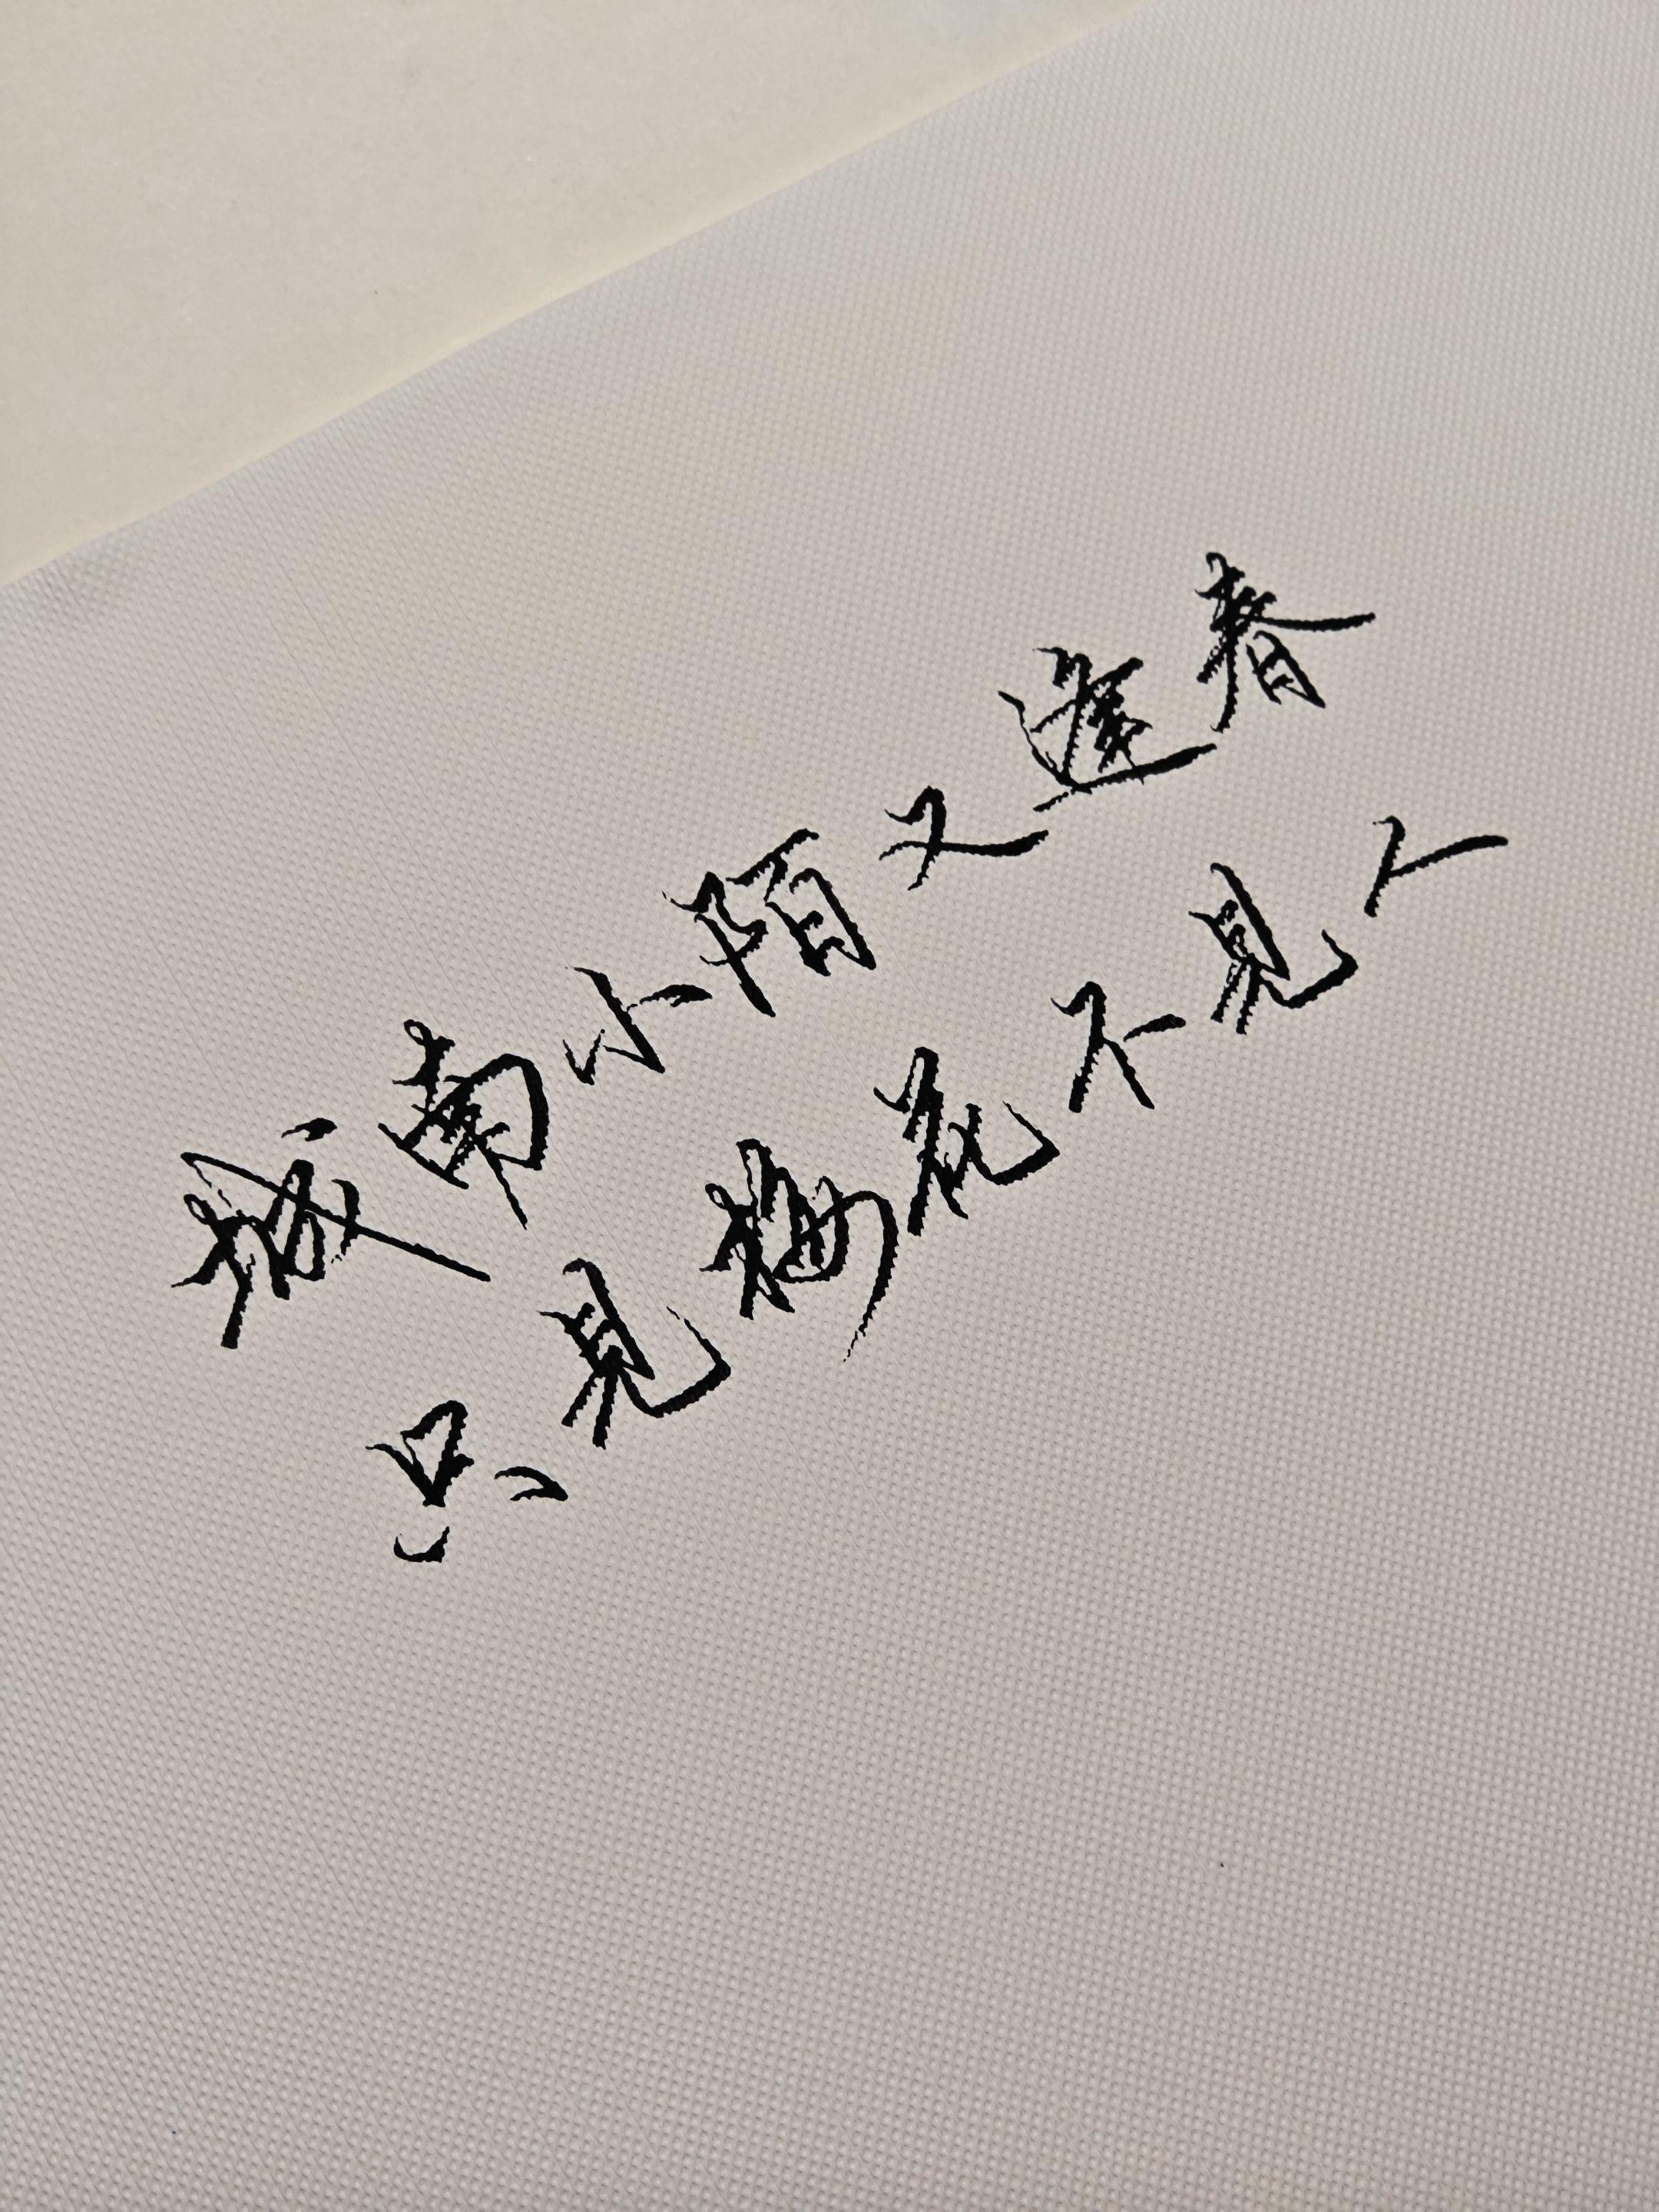 城南小陌又逢春
只見梅花不見人